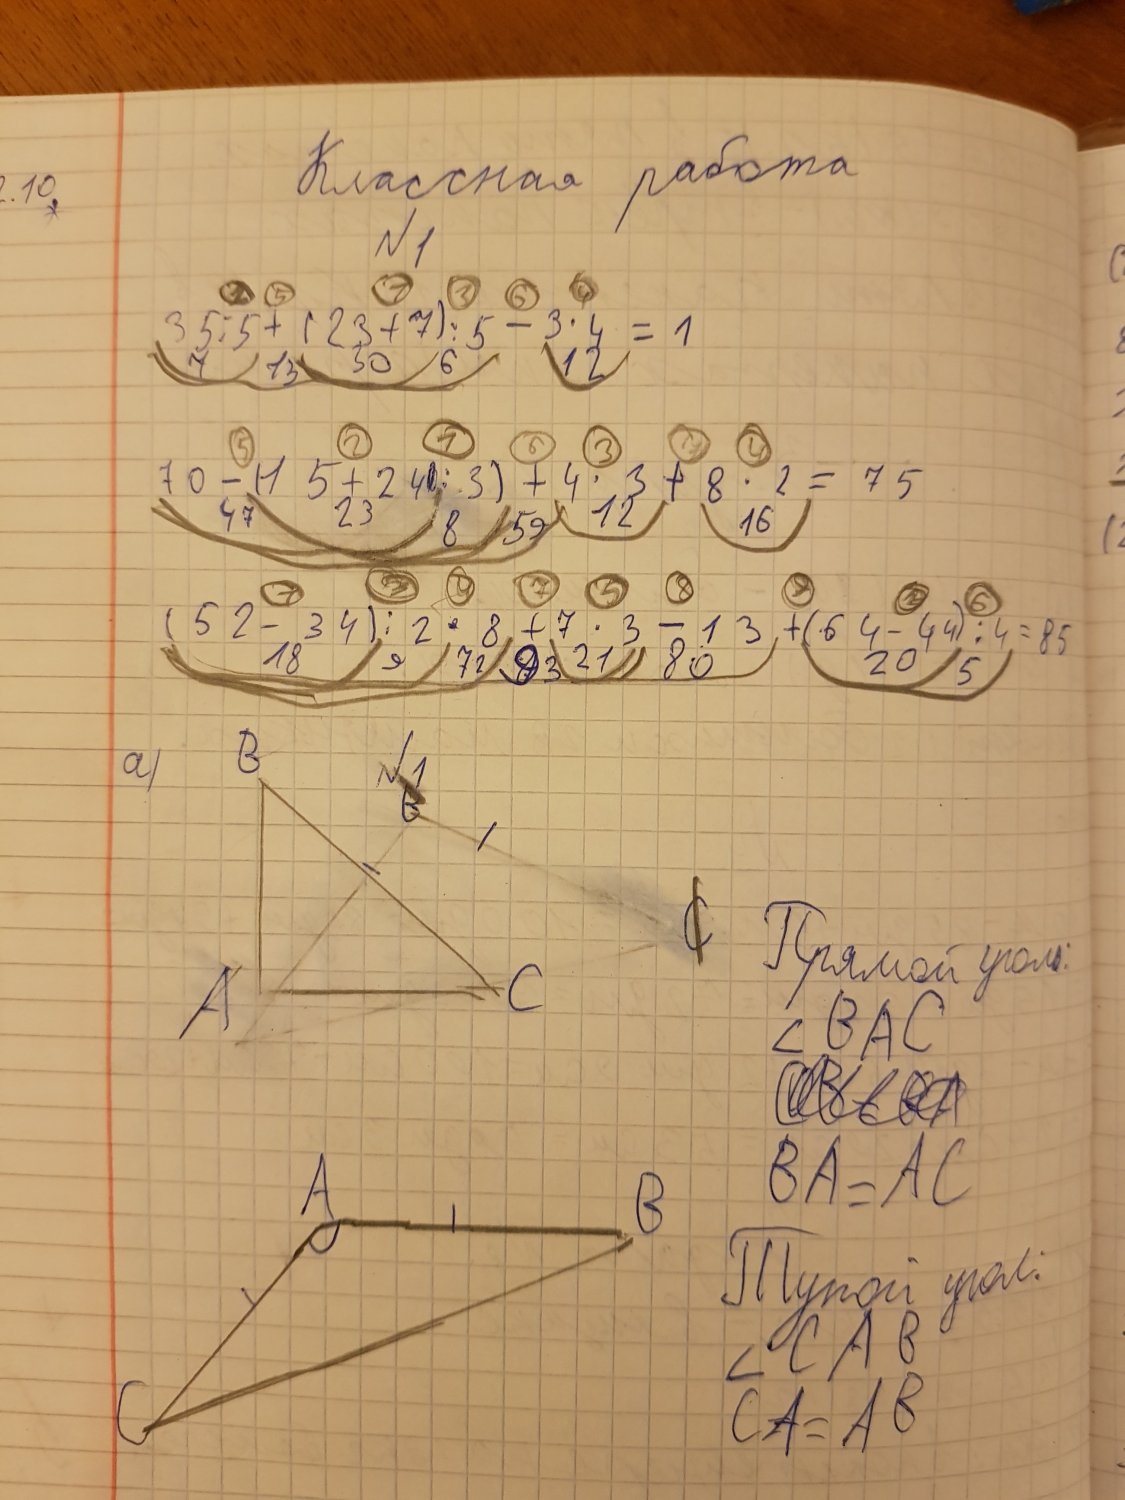 2.10.
Классная работа
№1
35:5+(23+7):5-3·4=1
7 13 30 6 12
70-(15+24:3)+4·3+8·2=75
47 23 8 59 12 16
(52-34):2·8+7·3-13+(64-44):4=85
18 9 72 93 21 80 20 5
а) B
№1
B
C
A
C
Прямой угол:
∠BAC
BA=AC
A
B
Тупой угол:
∠CAB
C
CA=AB